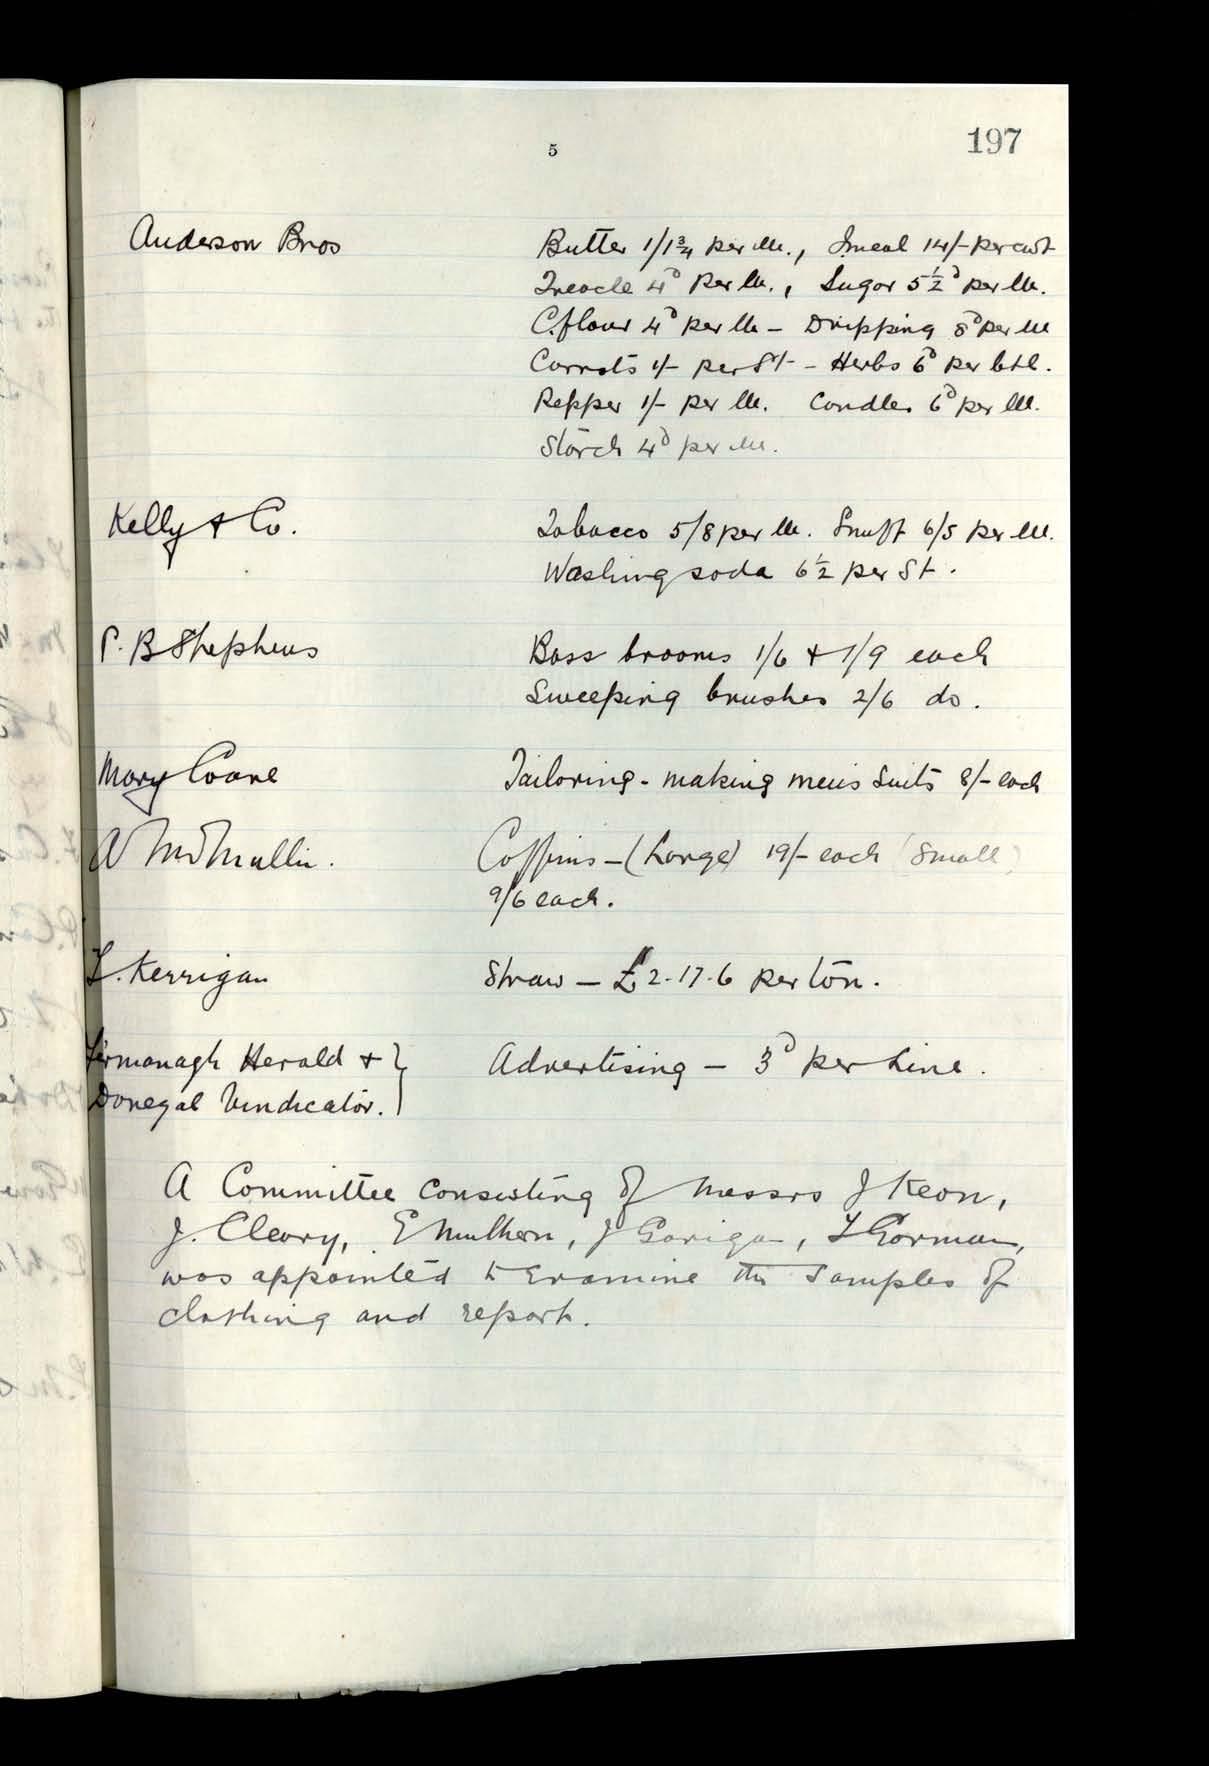 5
197
Anderson Bros
Butter 1/1¾ per lb., I.meal 14/- per cwt
Treacle 4d per lb., Sugar 5½d per lb.
C.flour 4d per lb - Dripping 8d per lb
Carrots 1/- per St - Herbs 6d per btl.
Pepper 1/- per lb. Candles 6d per lb.
Starch 4d per lb.
Kelly & Co.
Tobacco 5/8 per lb. Snuff 6/5 per lb.
Washing soda 6½ per St.
P. B Shephens
Bass brooms 1/6 & 1/9 each
Sweeping brushes 2/6 do.
Mary Coane
Tailoring - making men's suits 8/- each
A McMullin.
Coffins - (Large) 19/- each (Small)
9/6 each.
Kerrigan
Straw - £2-17-6 per ton.
Fermanagh Herald & }
Donegal Vindicator. }
Advertising - 3d per Line.
A Committee consisting of Messrs J Keon,
J. Cleary, E Mulhern, J Garigan, T Gorman,
was appointed to examine the samples of
clothing and report.